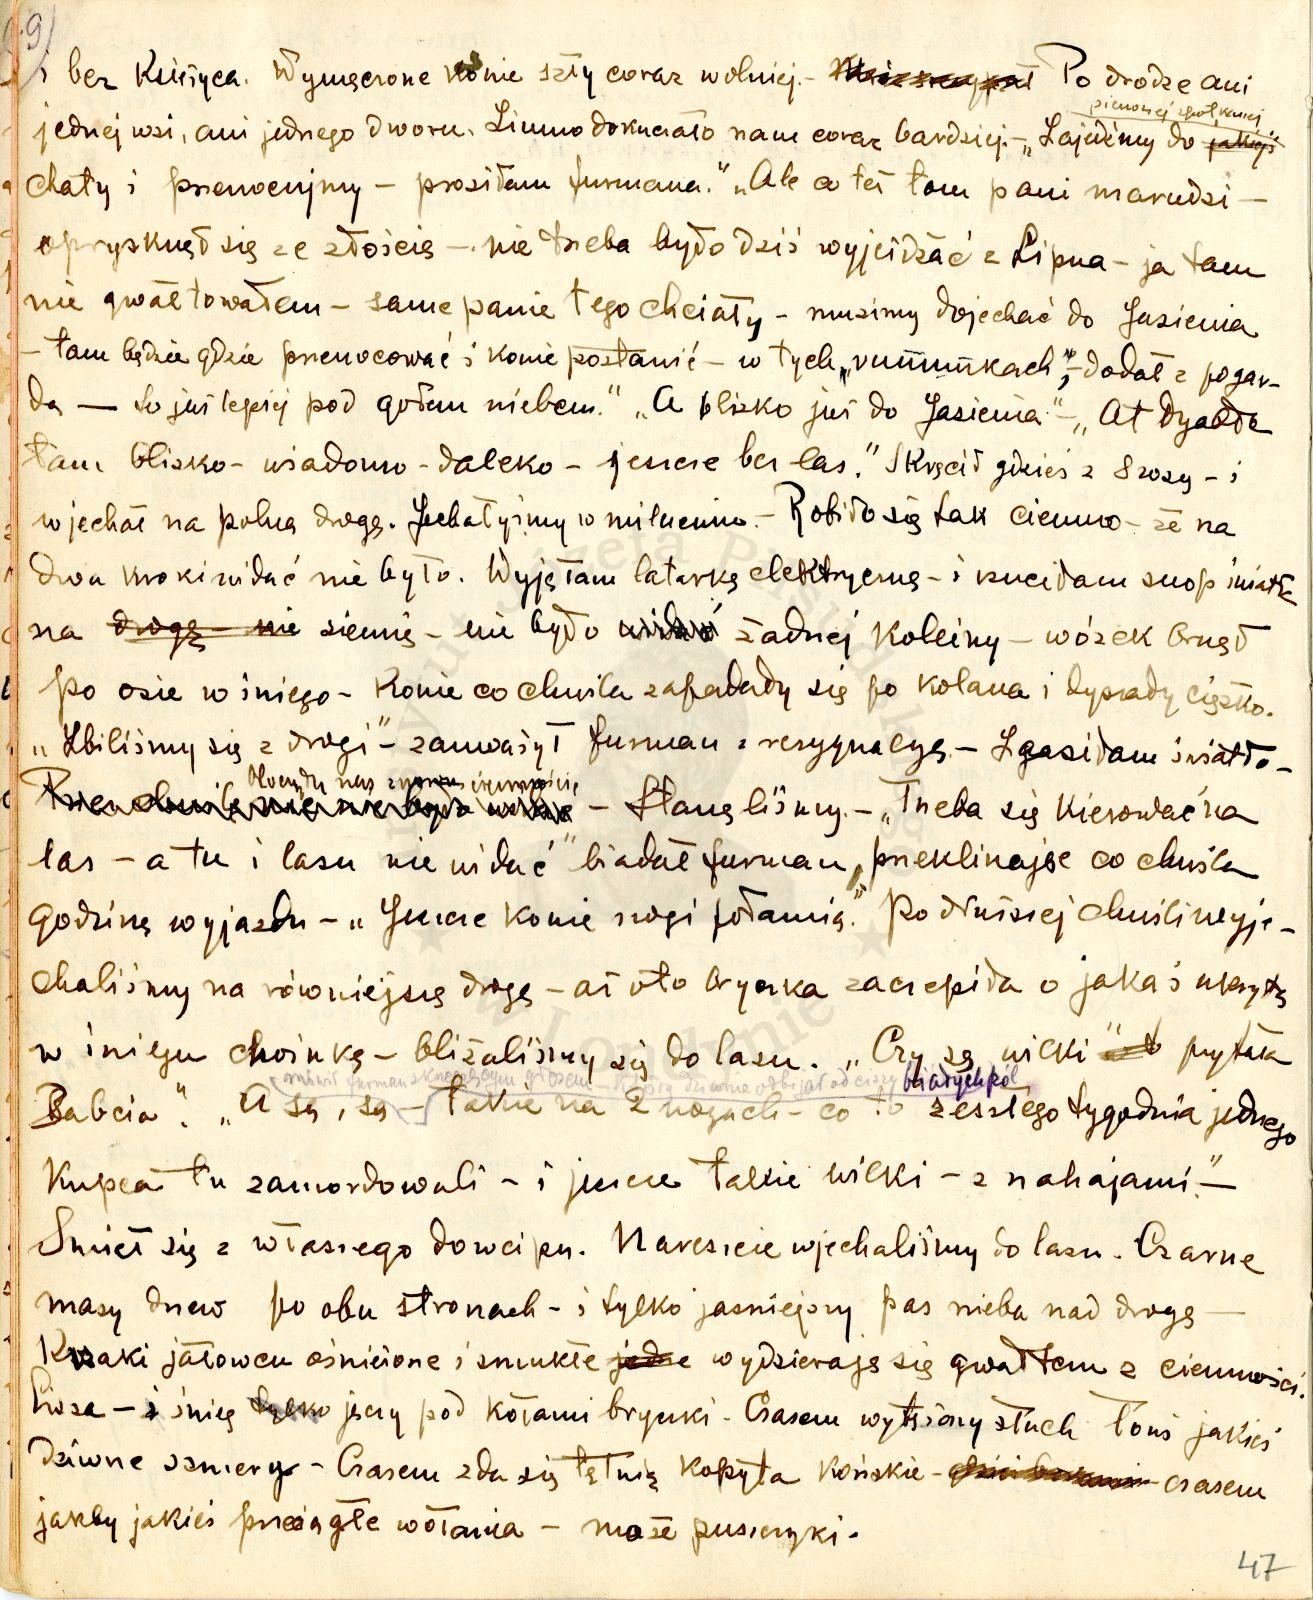 9)
i bez księżyca. Wymęczone konie szły coraz wolniej. – Po drodze ani
pierwszej spotkanej
jednej wsi, ani jednego dworu. Zimno dokuczało nam coraz bardziej. – „Zajedźmy do jakiejś
chaty i przenocujmy – prosiłam furmana." „Ale co też tam pani marudzi –
oprysknął się ze złością – nie trzeba było dziś wyjeżdżać z Lipna – ja tam
nie gwałtowałem – same panie tego chciały – musimy dojechać do Jasienia
– tam będzie gdzie przenocować i konie postawić – w tych „rumunkach", – dodał z pogar-
dą – to już lepiej pod gołem niebem." „A blizko już do Jasienia" – „At dyabła
tam blizko – wiadomo – daleko – jeszcze bez las." Skręcił gdzieś z szosy – i
wjechał na polną drogę. Jechałyśmy w milczeniu. – Robiło się tak ciemno – że na
dwa kroki widać nie było. Wyjęłam latarkę elektryczną – i rzuciłam snop światła
na drogę – nie ziemię – nie było widać żadnej koleiny – wózek brnął
po osie w śniegu – konie co chwila zapadały się po kolana i dyszały ciężko.
„Zbiliśmy się z drogi" – zauważył furman z rezygnacyą. – Zgasiłam światło –
Otoczyły nas znowu ciemności
– Stanęliśmy. – „Trzeba się kierować na
las – a tu i lasu nie widać" biadał furman, przeklinając co chwila
godzinę wyjazdu – „Jeszcze konie nogi połamią." Po dłuższej chwili wyje-
chaliśmy na równiejszą drogę – aż oto bryczka zaczepiła o jakąś ukrytą
w śniegu choinkę – bliżaliśmy się do lasu. „Czy są wilki" pytała
mówił furman skrzeczącym głosem – który dziwnie odbijał od ciszy białych pól
Babcia". „A są, są – takie na 2 nogach – co to zeszłego tygodnia jednego
kupca tu zamordowali – i jeszcze takie wilki – z nahajami." –
Śmiał się z własnego dowcipu. Nareszcie wjechaliśmy do lasu. Czarne
masy drzew po obu stronach – i tylko jaśniejszy pas nieba nad drogą –
Krzaki jałowcu ośnieżone i smukłe jodłe wydzierają się gwałtem z ciemności.
Cisza – i śnieg tylko jęczy pod kołami bryczki. Czasem wytężony słuch łowi jakieś
dziwne szmery – Czasem zda się tętnią kopyta końskie – czasem
jakby jakieś przeciągłe wołania – może puszczyki.
47